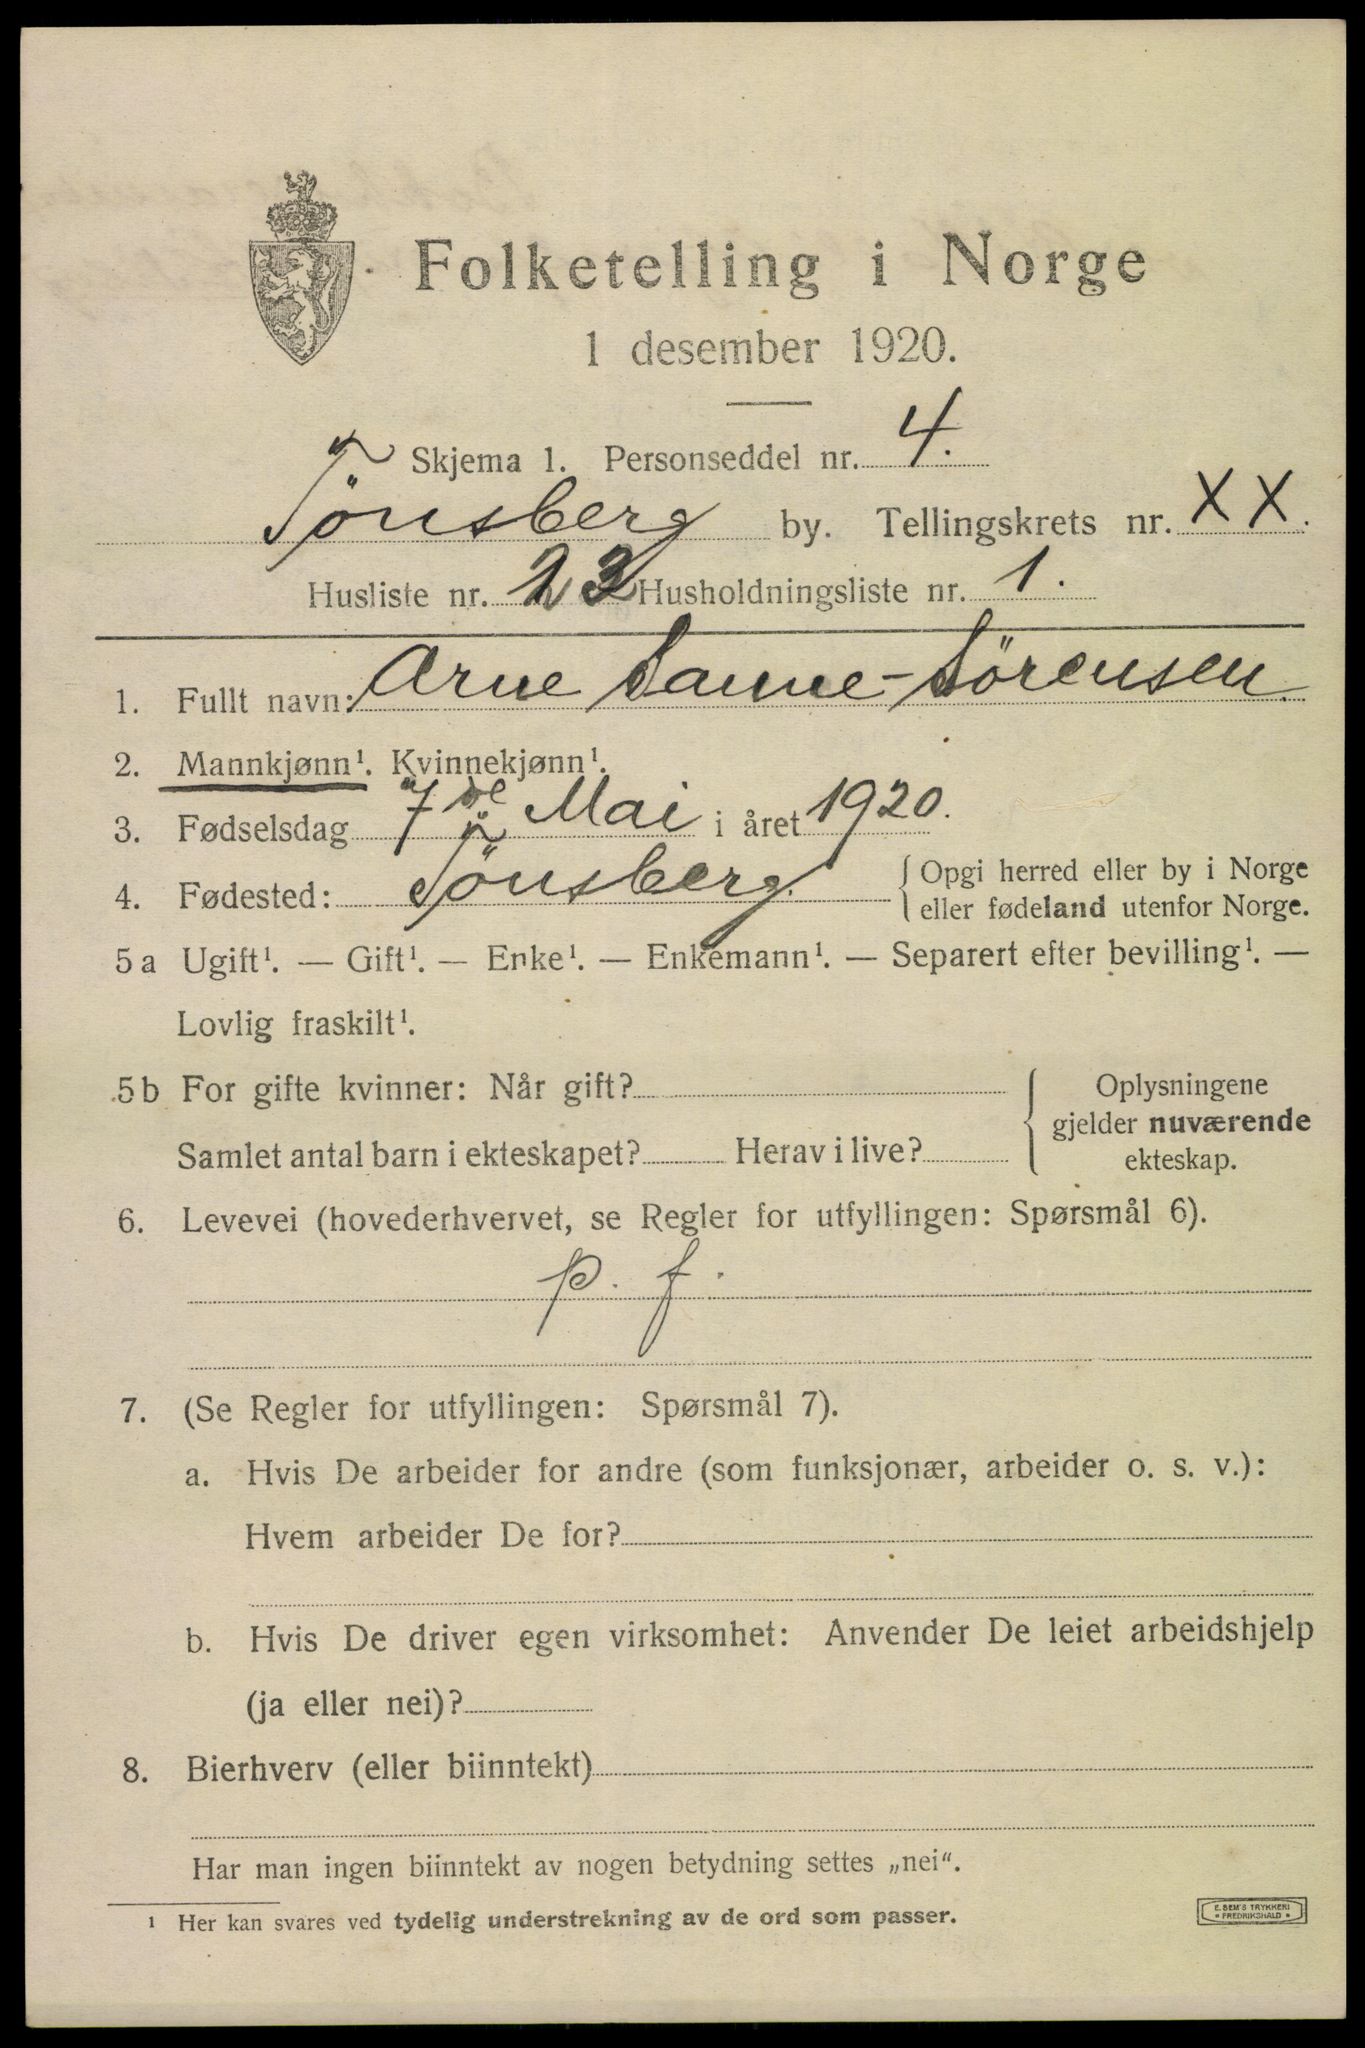 Folketelling i Norge
1 desember 1920.
Skjema 1. Personseddel nr. 4.
Tönsberg by. Tellingskrets nr. XX.
Husliste nr. 23 Husholdningsliste nr. 1.
1. Fullt navn: Arne Sanne-Sörensen.
2. Mannkjønn¹. Kvinnekjønn¹.
3. Fødselsdag 7de Mai i året 1920.
4. Fødested: Tönsberg. { Opgi herred eller by i Norge
eller fødeland utenfor Norge.
5a Ugift¹. — Gift¹. — Enke¹. — Enkemann¹. — Separert efter bevilling¹. —
Lovlig fraskilt¹.
5b For gifte kvinner: Når gift? { Oplysningene
gjelder nuværende
Samlet antal barn i ekteskapet? Herav i live? ekteskap.
6. Levevei (hovederhvervet, se Regler for utfyllingen: Spørsmål 6).
p. f.
7. (Se Regler for utfyllingen: Spørsmål 7).
a. Hvis De arbeider for andre (som funksjonær, arbeider o. s. v.):
Hvem arbeider De for?
b. Hvis De driver egen virksomhet: Anvender De leiet arbeidshjelp
(ja eller nei)?
8. Bierhverv (eller biinntekt)
Har man ingen biinntekt av nogen betydning settes „nei“.
¹ Her kan svares ved tydelig understrekning av de ord som passer.
E. SEM'S TRYKKERI
* FREDRIKSHALD *